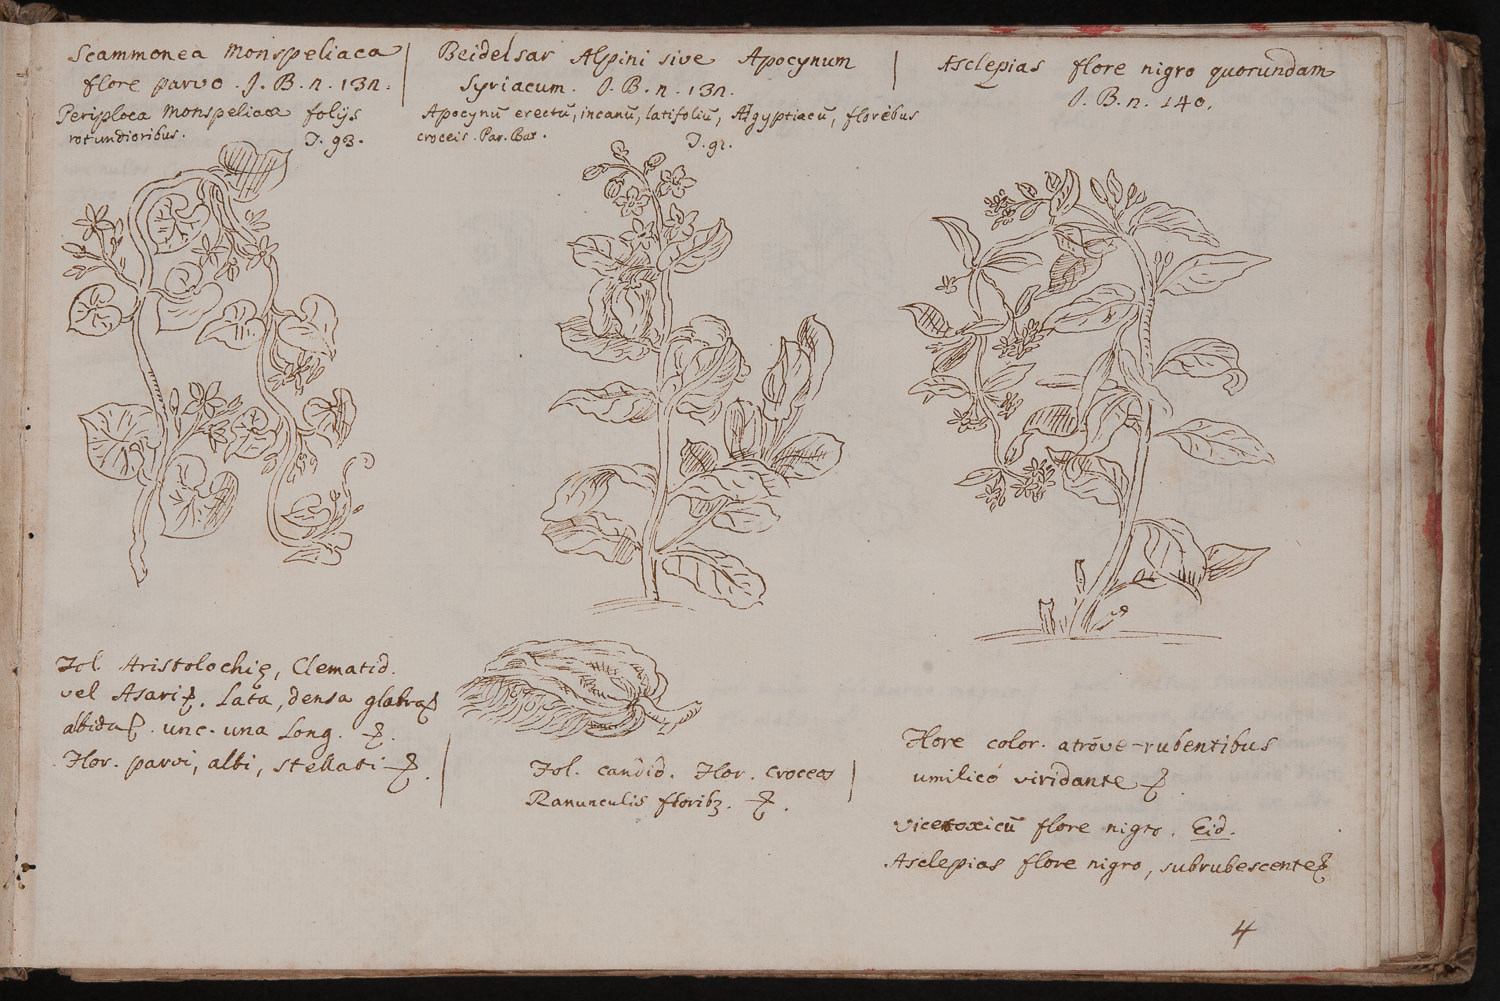 Scammonea Monspeliaca
flore parvo. J. B. n. 132.
Periploca Monspeliacæ folijs
rotundioribus. T. 93.
Beidelsar Alpini sive Apocynum
Syriacum. J. B. n. 132.
Apocynũ erectũ, incanũ, latifoliũ, Ægyptiacũ, floribus
croceis. Par. Bat. T. 91.
Asclepias flore nigro quorundam
J. B. n. 140.
Fol. Aristolochię, Clematid.
vel Asari. Lata, densa glabra
albida. unc. una Long.
Flor. parvi, albi, stellati
Fol. candid. Flor. croceos
Ranunculis florib3.
Flore color. atrove-rubentibus
umilicó viridante
vicetoxicũ flore nigro. Eid.
Asclepias flore nigro, subrubescente
4